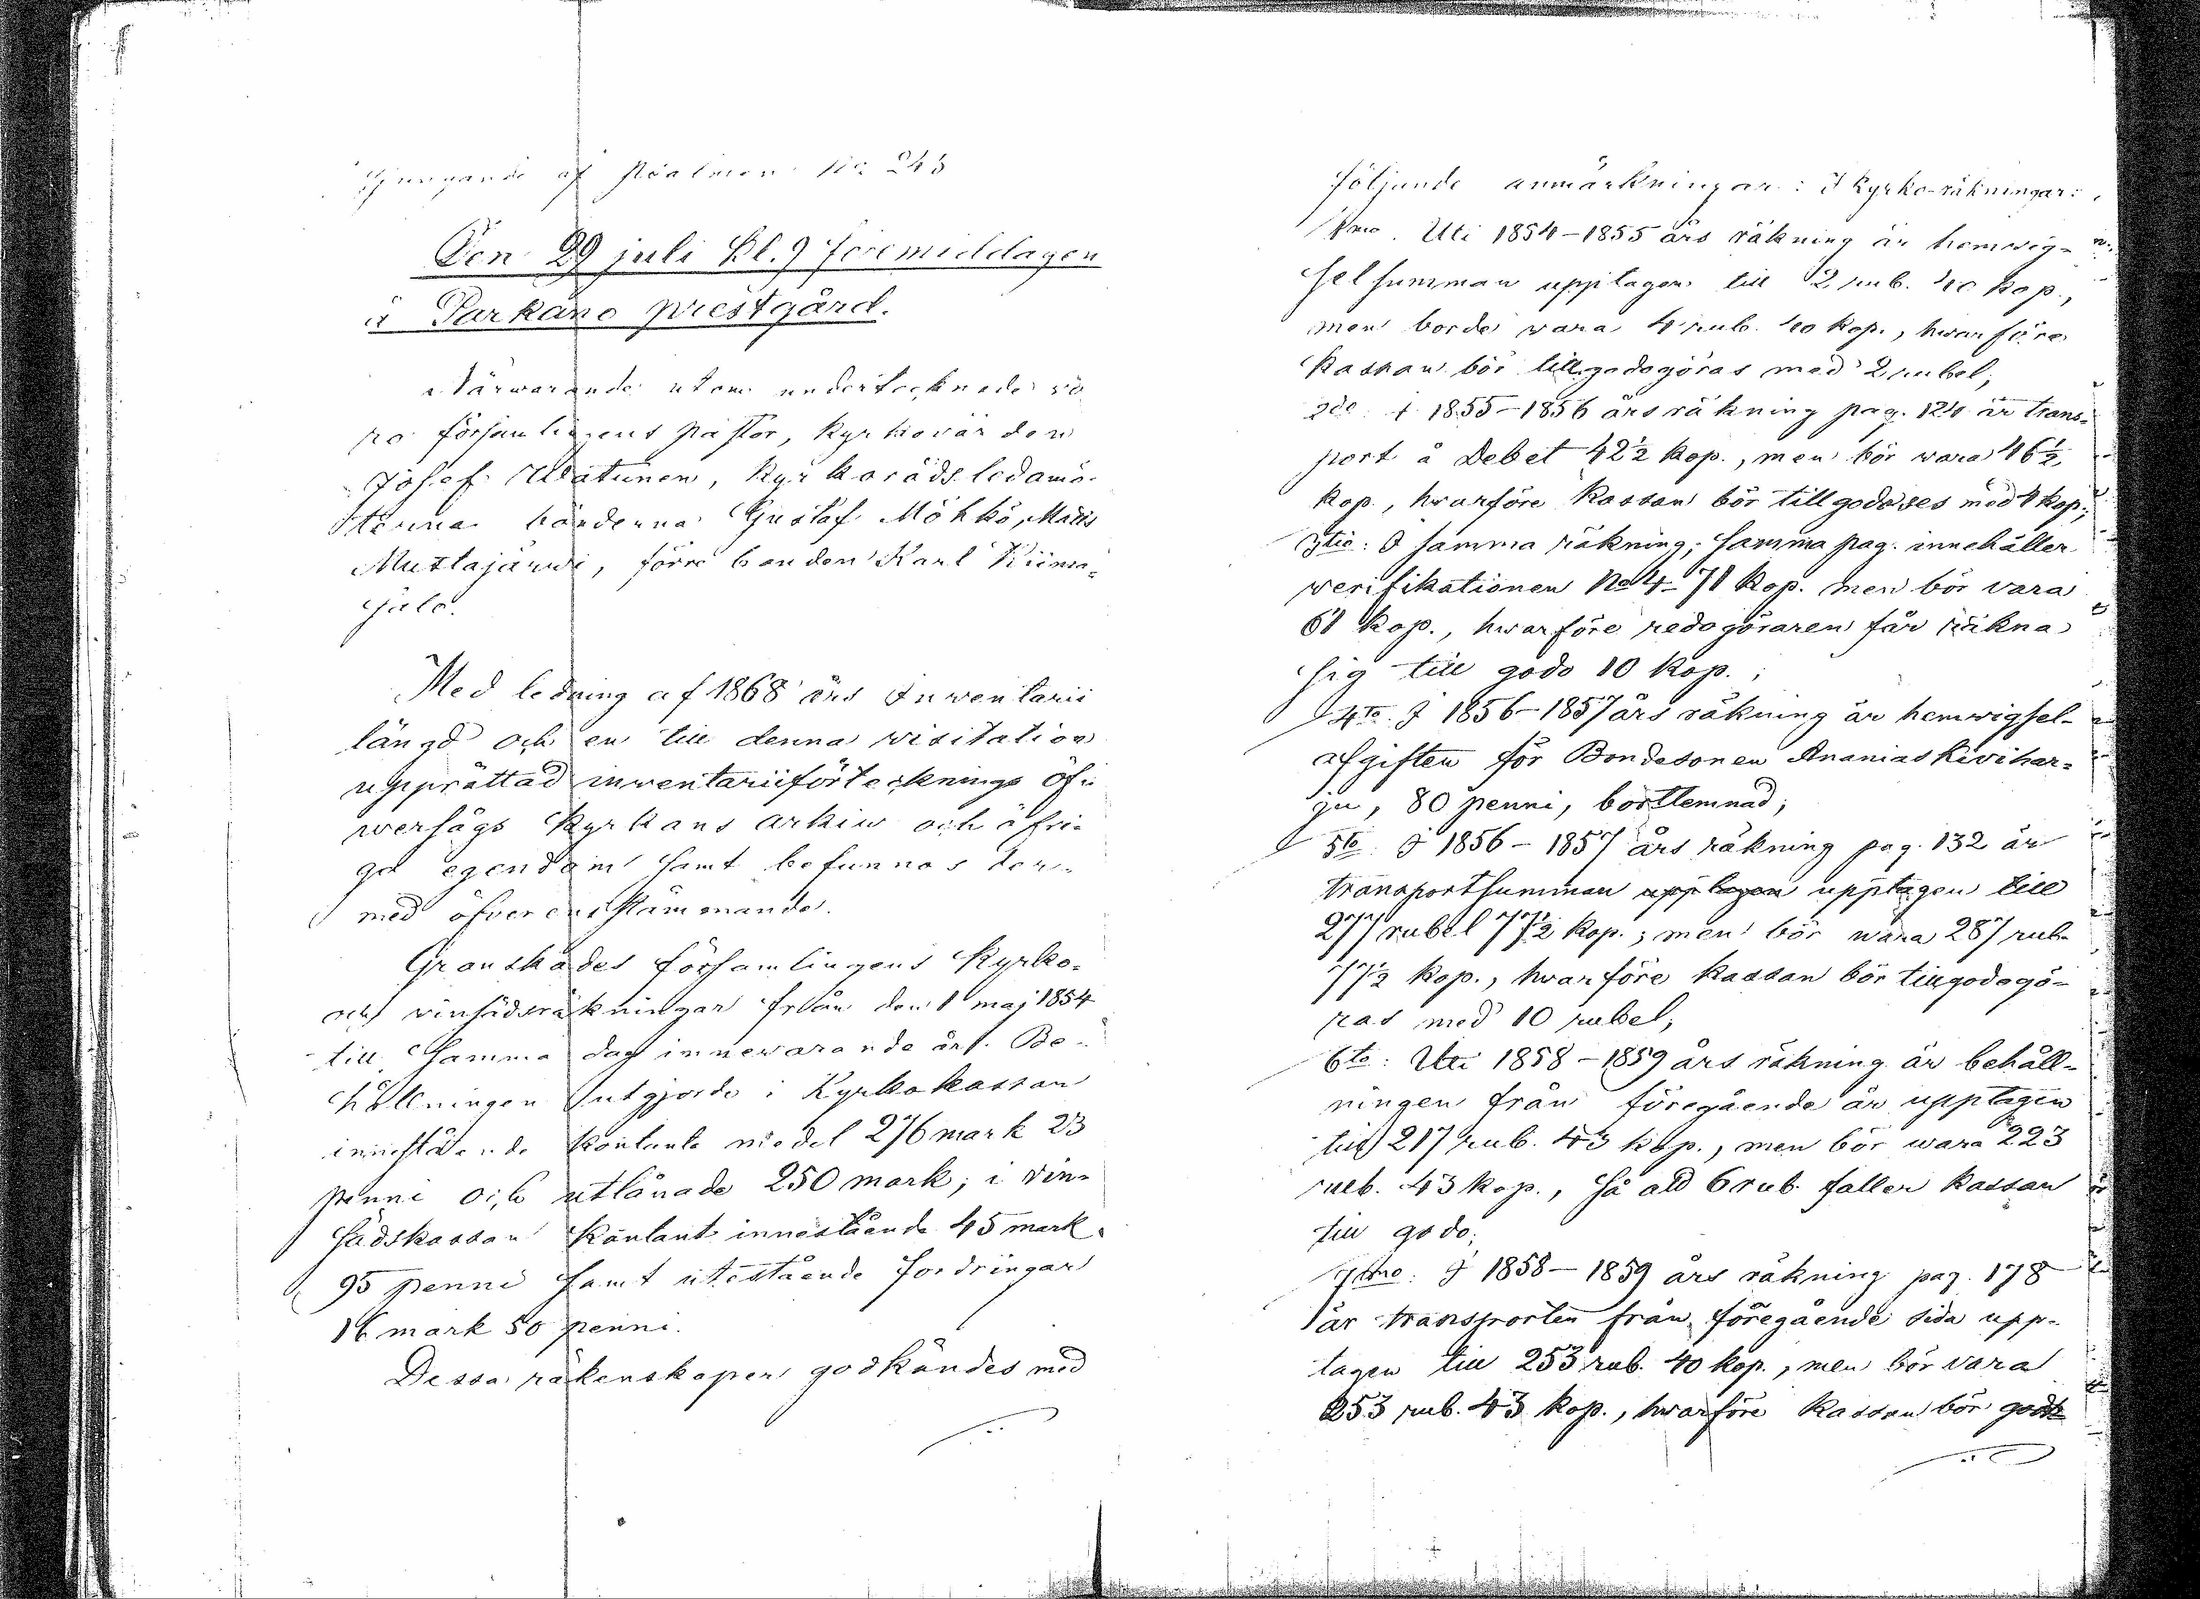 sjungande af psalmen No 243
Den 29 juli kl. 9 föremiddagen
å Parkano prestgård.
Närwarande utom undertecknade wo
ro församlingens pastor, kyrkovärden
Josef Watunen, kyrkorådsledamö-
terna bönderna Gustaf Möhkö, Matts
Mustajärwi, förre bonden Karl Kiima-
salo.
Med ledning af 1868 års Inwentarii
längd och en till denna visitation
upprättad inwentariiförtecknings öf-
wersågs kyrkans arkiw och öfri-
ga egendom samt befunnos der-
med öfverensstämmande.
Granskades församlingens kyrko-
och vinsädsräkningar från den 1 maj 1854
till samma dag innewarande år. Be-
hållningen utgjorde i Kyrkokassan
innestående kontanta medel 276 mark 23
penni och utlånade 250 mark; i vin-
sädskassan kontant innestående 45 mark
95 penni samt utestående fordringar
16 mark 50 penni.
Dessa räkenskaper godkändes med
följande anmärkningar: I kyrko-räkningar:
1mo. Uti 1854-1855 års räkning är hemwig-
selsumman upptagen till 2 rub. 40 kop.,
men borde wara 4 rub. 40 kop., hwarföre
kassan bör tillgodogöras med 2 rubel;
2do. i 1855-1856 års räkning pag. 124 är trans-
port å Debet 42½ kop., men bör wara 46½
kop., hwarföre kassan bör tillgodoses med 4 kop.;
3tio: I samma räkning, samma pag. innehåller
werifikationen No 4 71 kop. men bör vara
61 kop., hwarföre redogöraren får räkna
sig till godo 10 kop.;
4to. I 1856-1857 års räkning är hemwigsel-
afgiften för Bondesonen Ananias Kivihar-
ju, 80 penni, bortlemnad;
5to. I 1856-1857 års räkning pag. 132 är
transportsumman upptagen upptagen till
277 rubel 77½ kop.; men bör wara 287 rub.
77½ kop., hwarföre kassan bör tillgodogö-
ras med 10 rubel;
6to: Uti 1858-1859 års räkning är behåll-
ningen från föregående år upptagen
till 217 rub. 43 kop., men bör wara 223
rub. 43 kop., så att 6 rub. faller kassan
till godo;
7mo: I 1858-1859 års räkning pag. 178
är transporten från föregående sida upp-
tagen till 253 rub. 40 kop., men bör vara
253 rub. 43 kop., hwarföre kassan bör godt